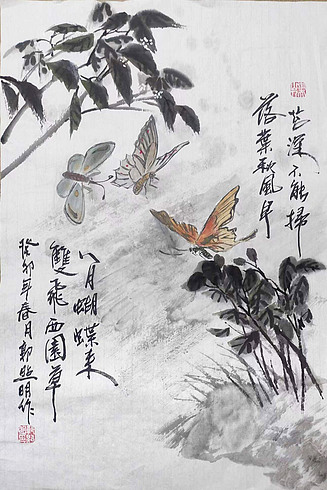 苔深不能掃
落葉秋風早
八月蝴蝶來
雙飛西園草
癸卯年春月郭明作